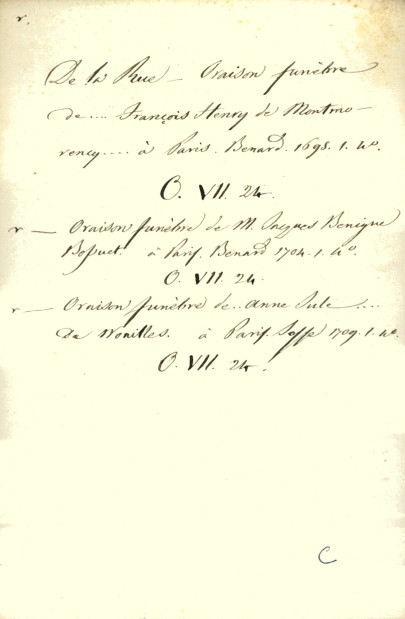 r.
De la Rue – Oraison funèbre
de .... François Henry de Montmo-
rency .... à Paris. Benard. 1695. 1. 4º.
O. VII. 24.
r — Oraison funèbre de M. Jacques Benigne
Bossuet. à Paris. Benard 1704. 1. 4º.
O. VII. 24.
r — Oraison funèbre de .. Anne Jule ....
De Noailles. à Paris. 1709. 1. 4º.
O. VII. 24.
C